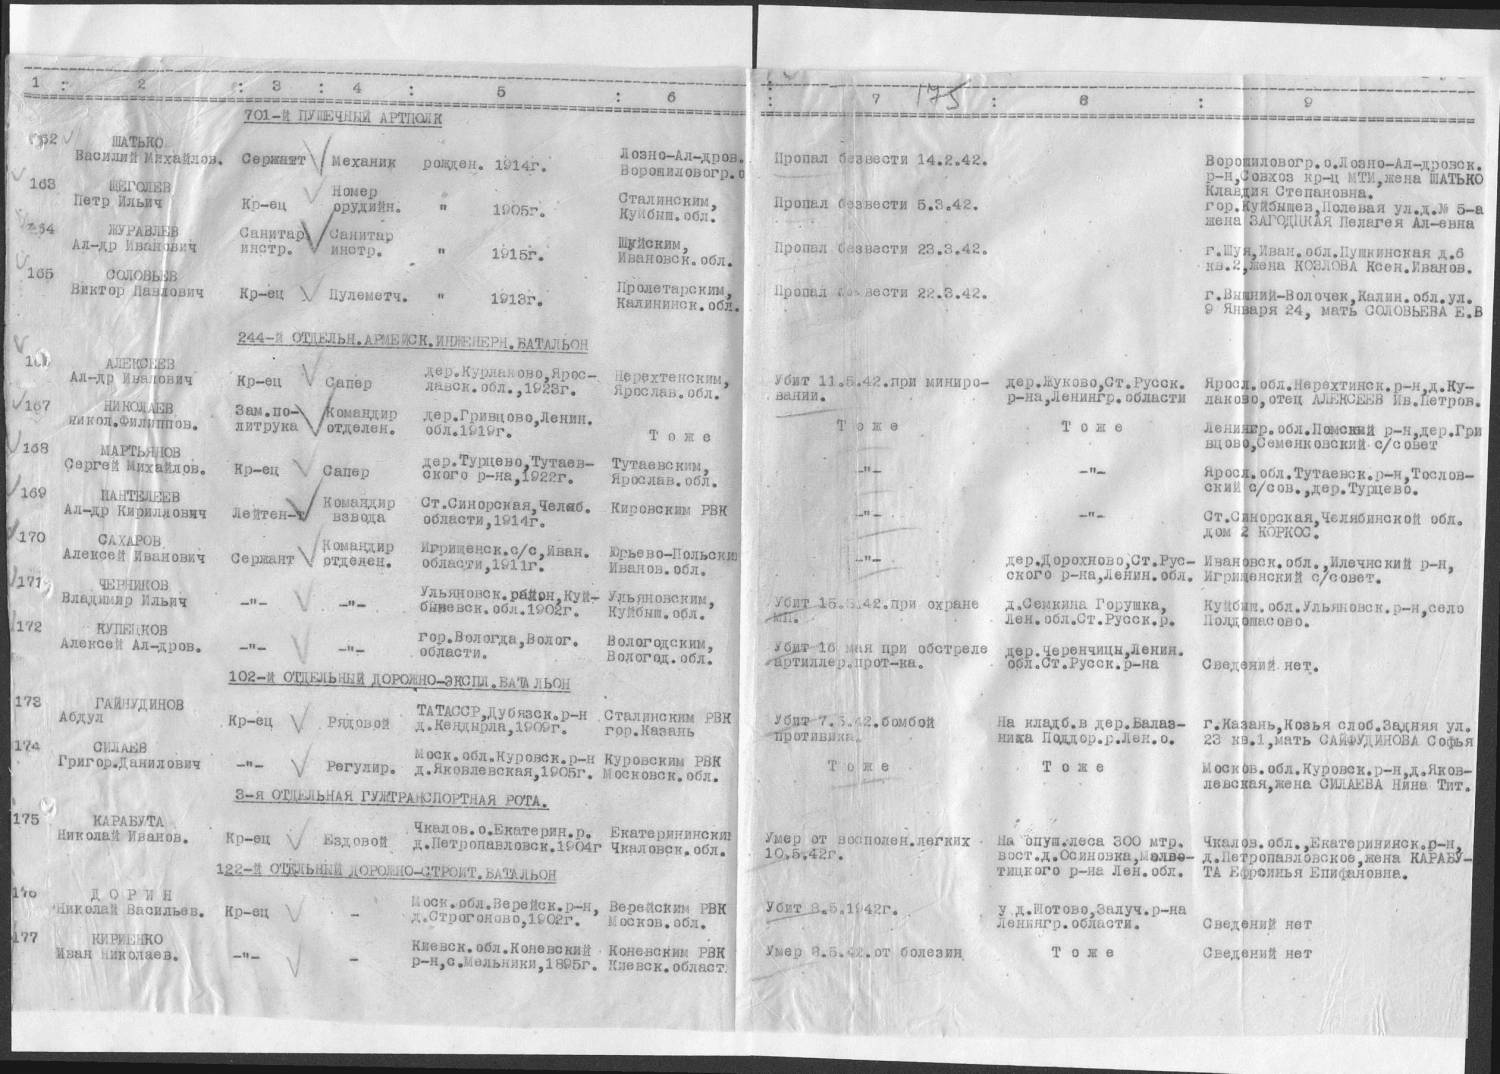 1 : 2 : 3 : 4 : 5 : 6 : 7 175 : 8 : 9
701-й ПУШЕЧНЫЙ АРТПОЛК
ШАТЬКО Лозно-Ал-дров.
Василий Михайлов. Сержант Механик рожден. 1914г. Ворошиловогр.о Пропал безвести 14.2.42. Ворошиловогр.о.Лозно-Ал-дровск.
р-н,Совхоз кр-ц МТИ,жена ШАТЬКО
Клавдия Степановна.
163 ЩЕГОЛЕВ Номер Сталинским,
Петр Ильич Кр-ец орудийн. " 1905г. Куйбыш.обл. Пропал безвести 5.3.42. гор.Куйбышев,Полевая ул.д.№ 5-а
жена ЗАГОДЦКАЯ Пелагея Ал-евна
164 ЖУРАВЛЕВ Санитар Санитар Шуйским,
Ал-др Иванович инстр. инстр. " 1915г. Ивановск.обл. Пропал безвести 23.3.42. г.Шуя,Иван.обл.Пушкинская д.6
кв.2,жена КОЗЛОВА Ксен.Иванов.
165 СОЛОВЬЕВ Пролетарским,
Виктор Павлович Кр-ец Пулеметч. " 1913г. Калининск.обл. Пропал безвести 22.3.42. г.Вышний-Волочек,Калин.обл.ул.
9 Января 24, мать СОЛОВЬЕВА Е.В
244-й ОТДЕЛЬН.АРМЕЙСК.ИНЖЕНЕРН.БАТАЛЬОН
АЛЕКСЕЕВ дер.Курлаково,Ярос- Нерехтенским,
Ал-др Иванович Кр-ец Сапер лавск.обл.,1923г. Ярослав.обл. Убит 11.5.42.при миниро- дер.Жуково,Ст.Русск. Яросл.обл.Нерехтинск.р-н,д.Ку-
вании. р-на,Ленингр.области лаково,отец АЛЕКСЕЕВ Ив.Петров.
167 НИКОЛАЕВ Зам.по- Командир дер.Гривцово,Ленин.
Никол.Филиппов. литрука отделен. обл.1919г. Т о ж е Т о ж е Т о ж е Ленингр.обл.Помский р-н,дер.Гри
вцово,Семенковский с/совет
168 МАРТЬЯНОВ дер.Турцево,Тутаев- Тутаевским,
Сергей Михайлов. Кр-ец Сапер ского р-на,1922г. Ярослав.обл. -"- -"- Яросл.обл.Тутаевск.р-н,Тослов-
ский с/сов.,дер.Турцево.
169 ПАНТЕЛЕЕВ Командир Ст.Синорская,Челяб.
Ал-др Кириллович Лейтен-т взвода области,1914г. Кировским РВК -"- -"- Ст.Синорская,Челябинской обл.
дом 2 КОРКОС.
170 САХАРОВ Командир Игрищенск.с/с,Иван. Юрьево-Польским
Алексей Иванович Сержант отделен. области,1911г. Иванов.обл. -"- дер.Дорохново,Ст.Рус- Ивановск.обл.,Илечнский р-н,
ского р-на,Ленин.обл. Игрищенский с/совет.
171 ЧЕРНИКОВ Ульяновск.район,Куй- Ульяновским,
Владимир Ильич -"- -"- бышевск.обл.1902г. Куйбыш.обл. Убит 15.5.42.при охране д.Семкина Горушка, Куйбыш.обл.Ульяновск.р-н,село
КП. Лен.обл.Ст.Русск.р. Полдомасово.
172 КУПЕЦКОВ гор.Вологда,Волог. Вологодским,
Алексей Ал-дров. -"- -"- области. Вологод.обл. Убит 16 мая при обстреле дер.Черенчицы,Ленин.
артиллер.прот-ка. обл.Ст.Русск.р-на Сведений нет.
102-й ОТДЕЛЬНЫЙ ДОРОЖНО-ЭКСПЛ.БАТАЛЬОН
173 ГАЙНУДИНОВ ТАТАССР,Дубязск.р-н Сталинским РВК
Абдул Кр-ец Рядовой д.Кендырла,1909г. гор.Казань Убит 7.5.42.бомбой На кладб.в дер.Балаз- г.Казань,Козья слоб.Задняя ул.
противника. нижа Поддор.р.Лен.о. 23 кв.1,мать САЙФУДИНОВА Софья
174 СИЛАЕВ Моск.обл.Куровск.р-н Куровским РВК
Григор.Данилович -"- Регулир. д.Яковлевская,1905г. Московск.обл. Т о ж е Т о ж е Москов.обл.Куровск.р-н,д.Яков-
левская,жена СИЛАЕВА Нина Тит.
3-я ОТДЕЛЬНАЯ ГУЖТРАНСПОРТНАЯ РОТА.
175 КАРАБУТА Чкалов.о.Екатерин.р. Екатерининским
Николай Иванов. Кр-ец Ездовой д.Петропавловск.1904г Чкаловск.обл. Умер от восполен.легких На опуш.леса 300 мтр. Чкалов.обл.,Екатерининск.р-н,
10.5.42г. вост.д.Осиновка,Молво- д.Петропавловское,жена КАРАБУ-
тицкого р-на Лен.обл. ТА Ефросинья Епифановна.
122-й ОТДЕЛЬНЫЙ ДОРОЖНО-СТРОИТ.БАТАЛЬОН
176 Д О Р И Н Моск.обл.Верейск.р-н, Верейским РВК
Николай Васильев. Кр-ец - д.Строгоново,1902г. Москов.обл. Убит 8.5.1942г. у д.Шотово,Залуч.р-на
Ленингр.области. Сведений нет
177 КИРИЕНКО Киевск.обл.Коневский Коневским РВК
Иван Николаев. -"- - р-н,с.Мельники,1895г. Киевск.област. Умер 8.5.42.от болезни Т о ж е Сведений нет